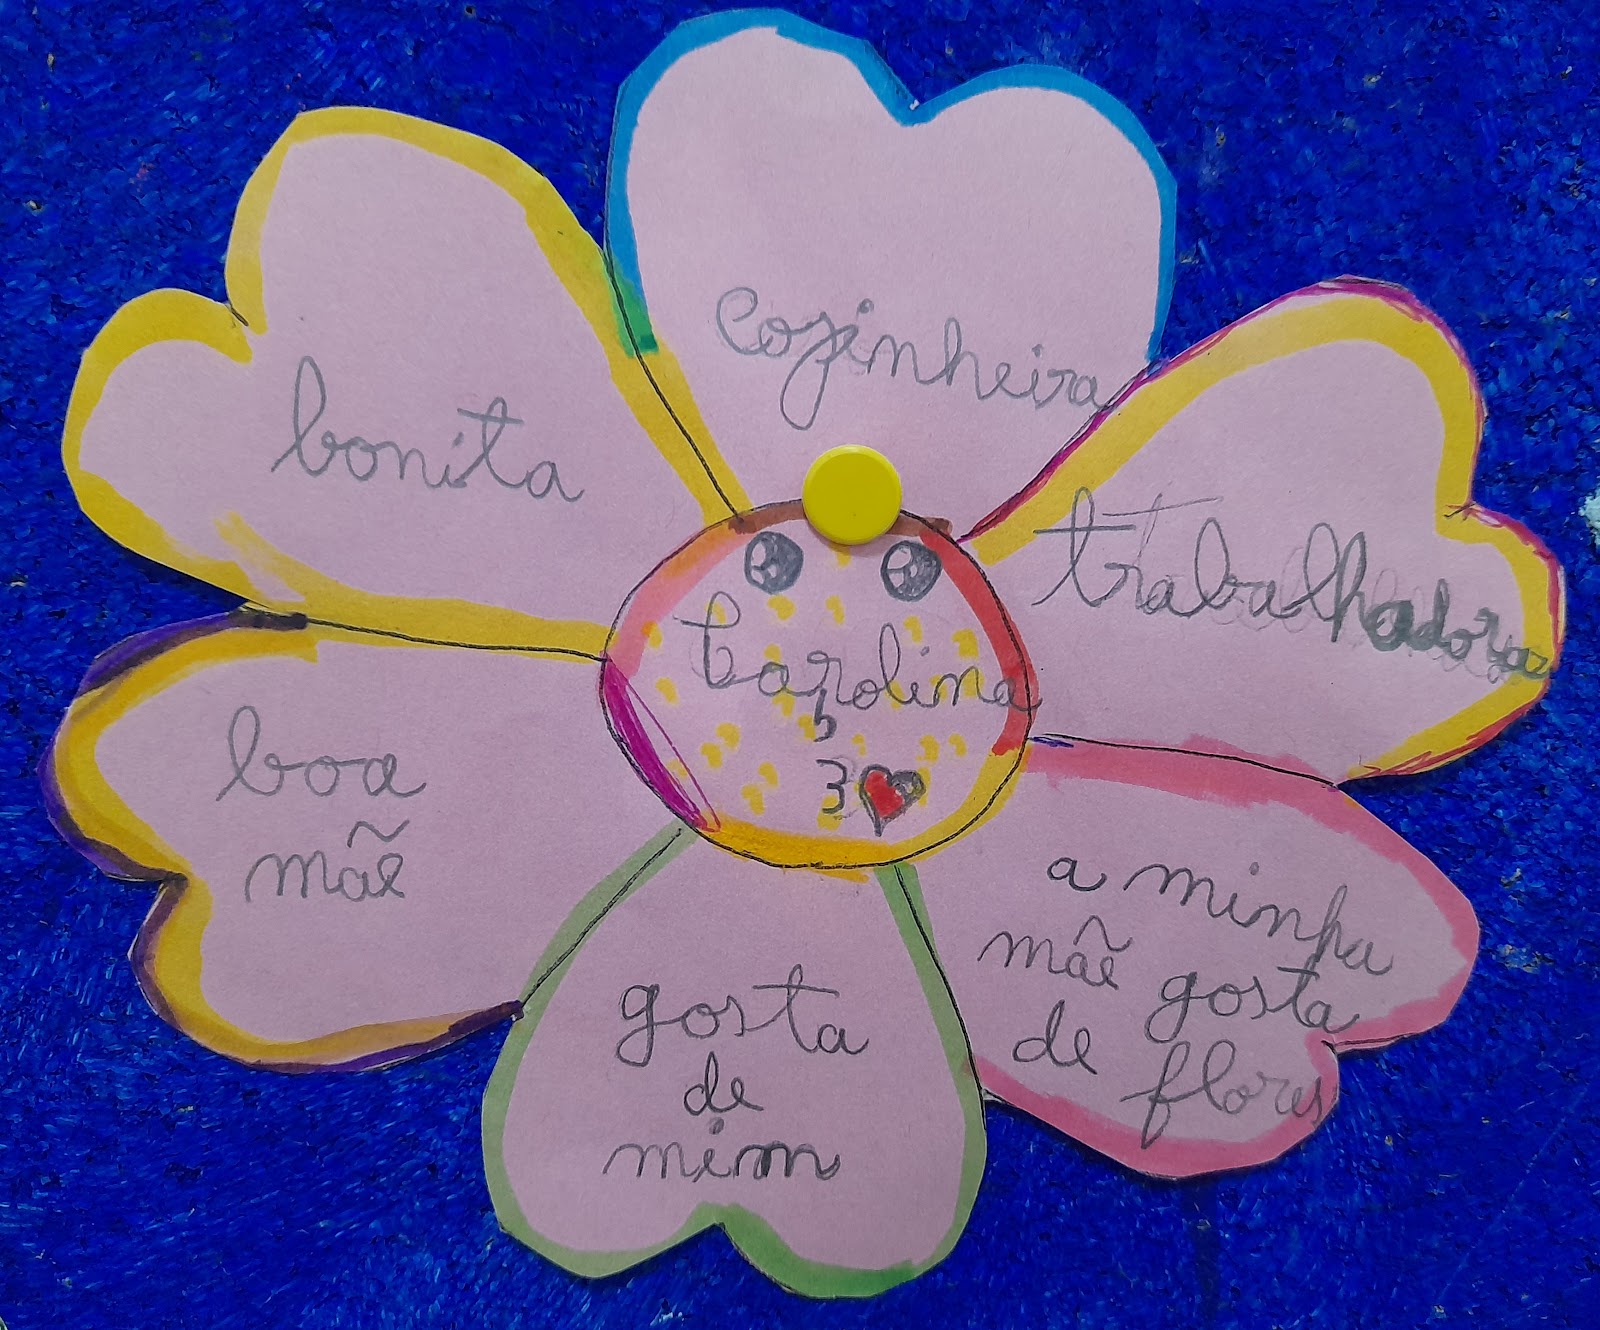 cozinheira
trabalhadora
a minha
mãe gosta
de flores
gosta
de
mim
boa
mãe
bonita
Carolina
3